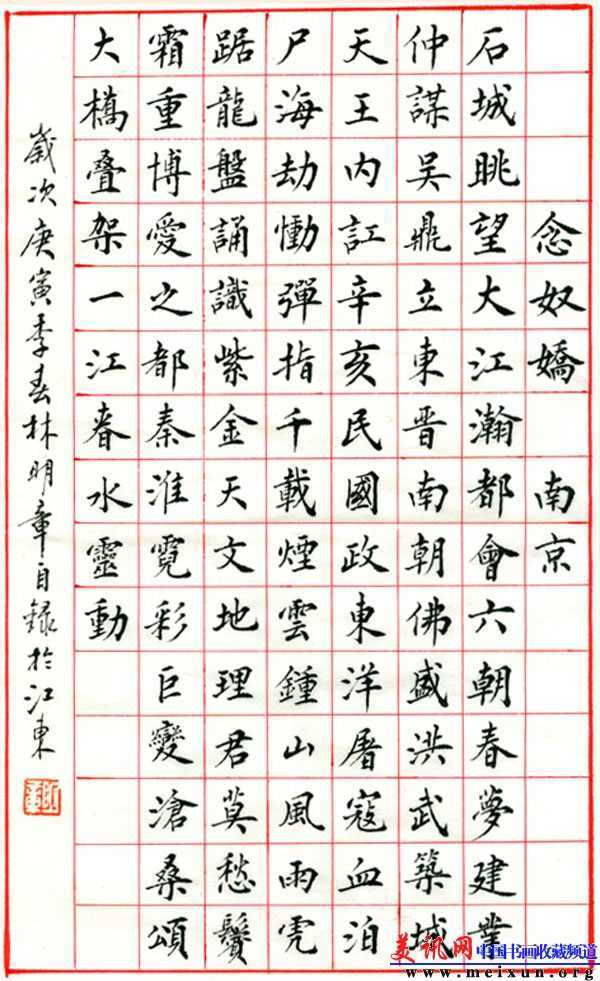 念奴嬌 南京
石城眺望大江瀚都會六朝春夢建業
仲謀吳鼎立東晉南朝佛盛洪武築城
天王內訌辛亥民國政東洋屠寇血泊
尸海劫慟彈指千載煙雲鍾山風雨虎
踞龍盤誦識紫金天文地理君莫愁鬢
霜重博愛之都秦淮霓彩巨變滄桑頌
大橋叠架一江春水靈動
歲次庚寅季春林明章自錄於江東
美讯网 中国书画收藏频道
www.meixun.org